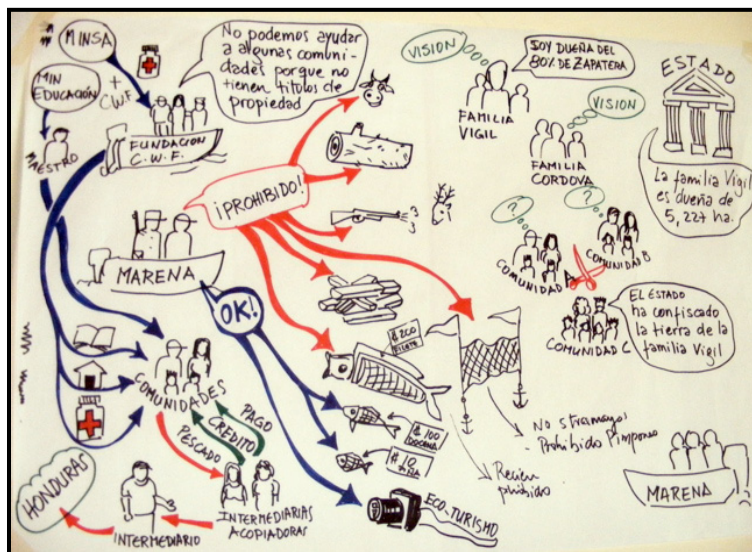 MINSA
MIN
EDUCACIÓN
+
C.W.F.
MAESTRO
FUNDACION
C.W.F.
No podemos ayudar
a algunas comuni-
dades porque no
tienen titulos de
propiedad
¡PROHIBIDO!
MARENA
OK!
COMUNIDADES
PAGO
CREDITO
PESCADO
HONDURAS
INTERMEDIARIO
INTERMEDIARIAS
ACOPIADORAS
$ 200
$ 100
DOCENA
$ 10
ECO-TURISMO
VISION
SOY DUEÑA DEL
80% DE ZAPATERA
FAMILIA
VIGIL
VISION
FAMILIA
CORDOVA
ESTADO
La familia Vigil
es dueña de
5,227 ha.
?
?
COMUNIDAD A
COMUNIDAD B
COMUNIDAD C
EL ESTADO
ha confiscado
la tierra de la
familia Vigil
No
Prohibido
Recien
MARENA